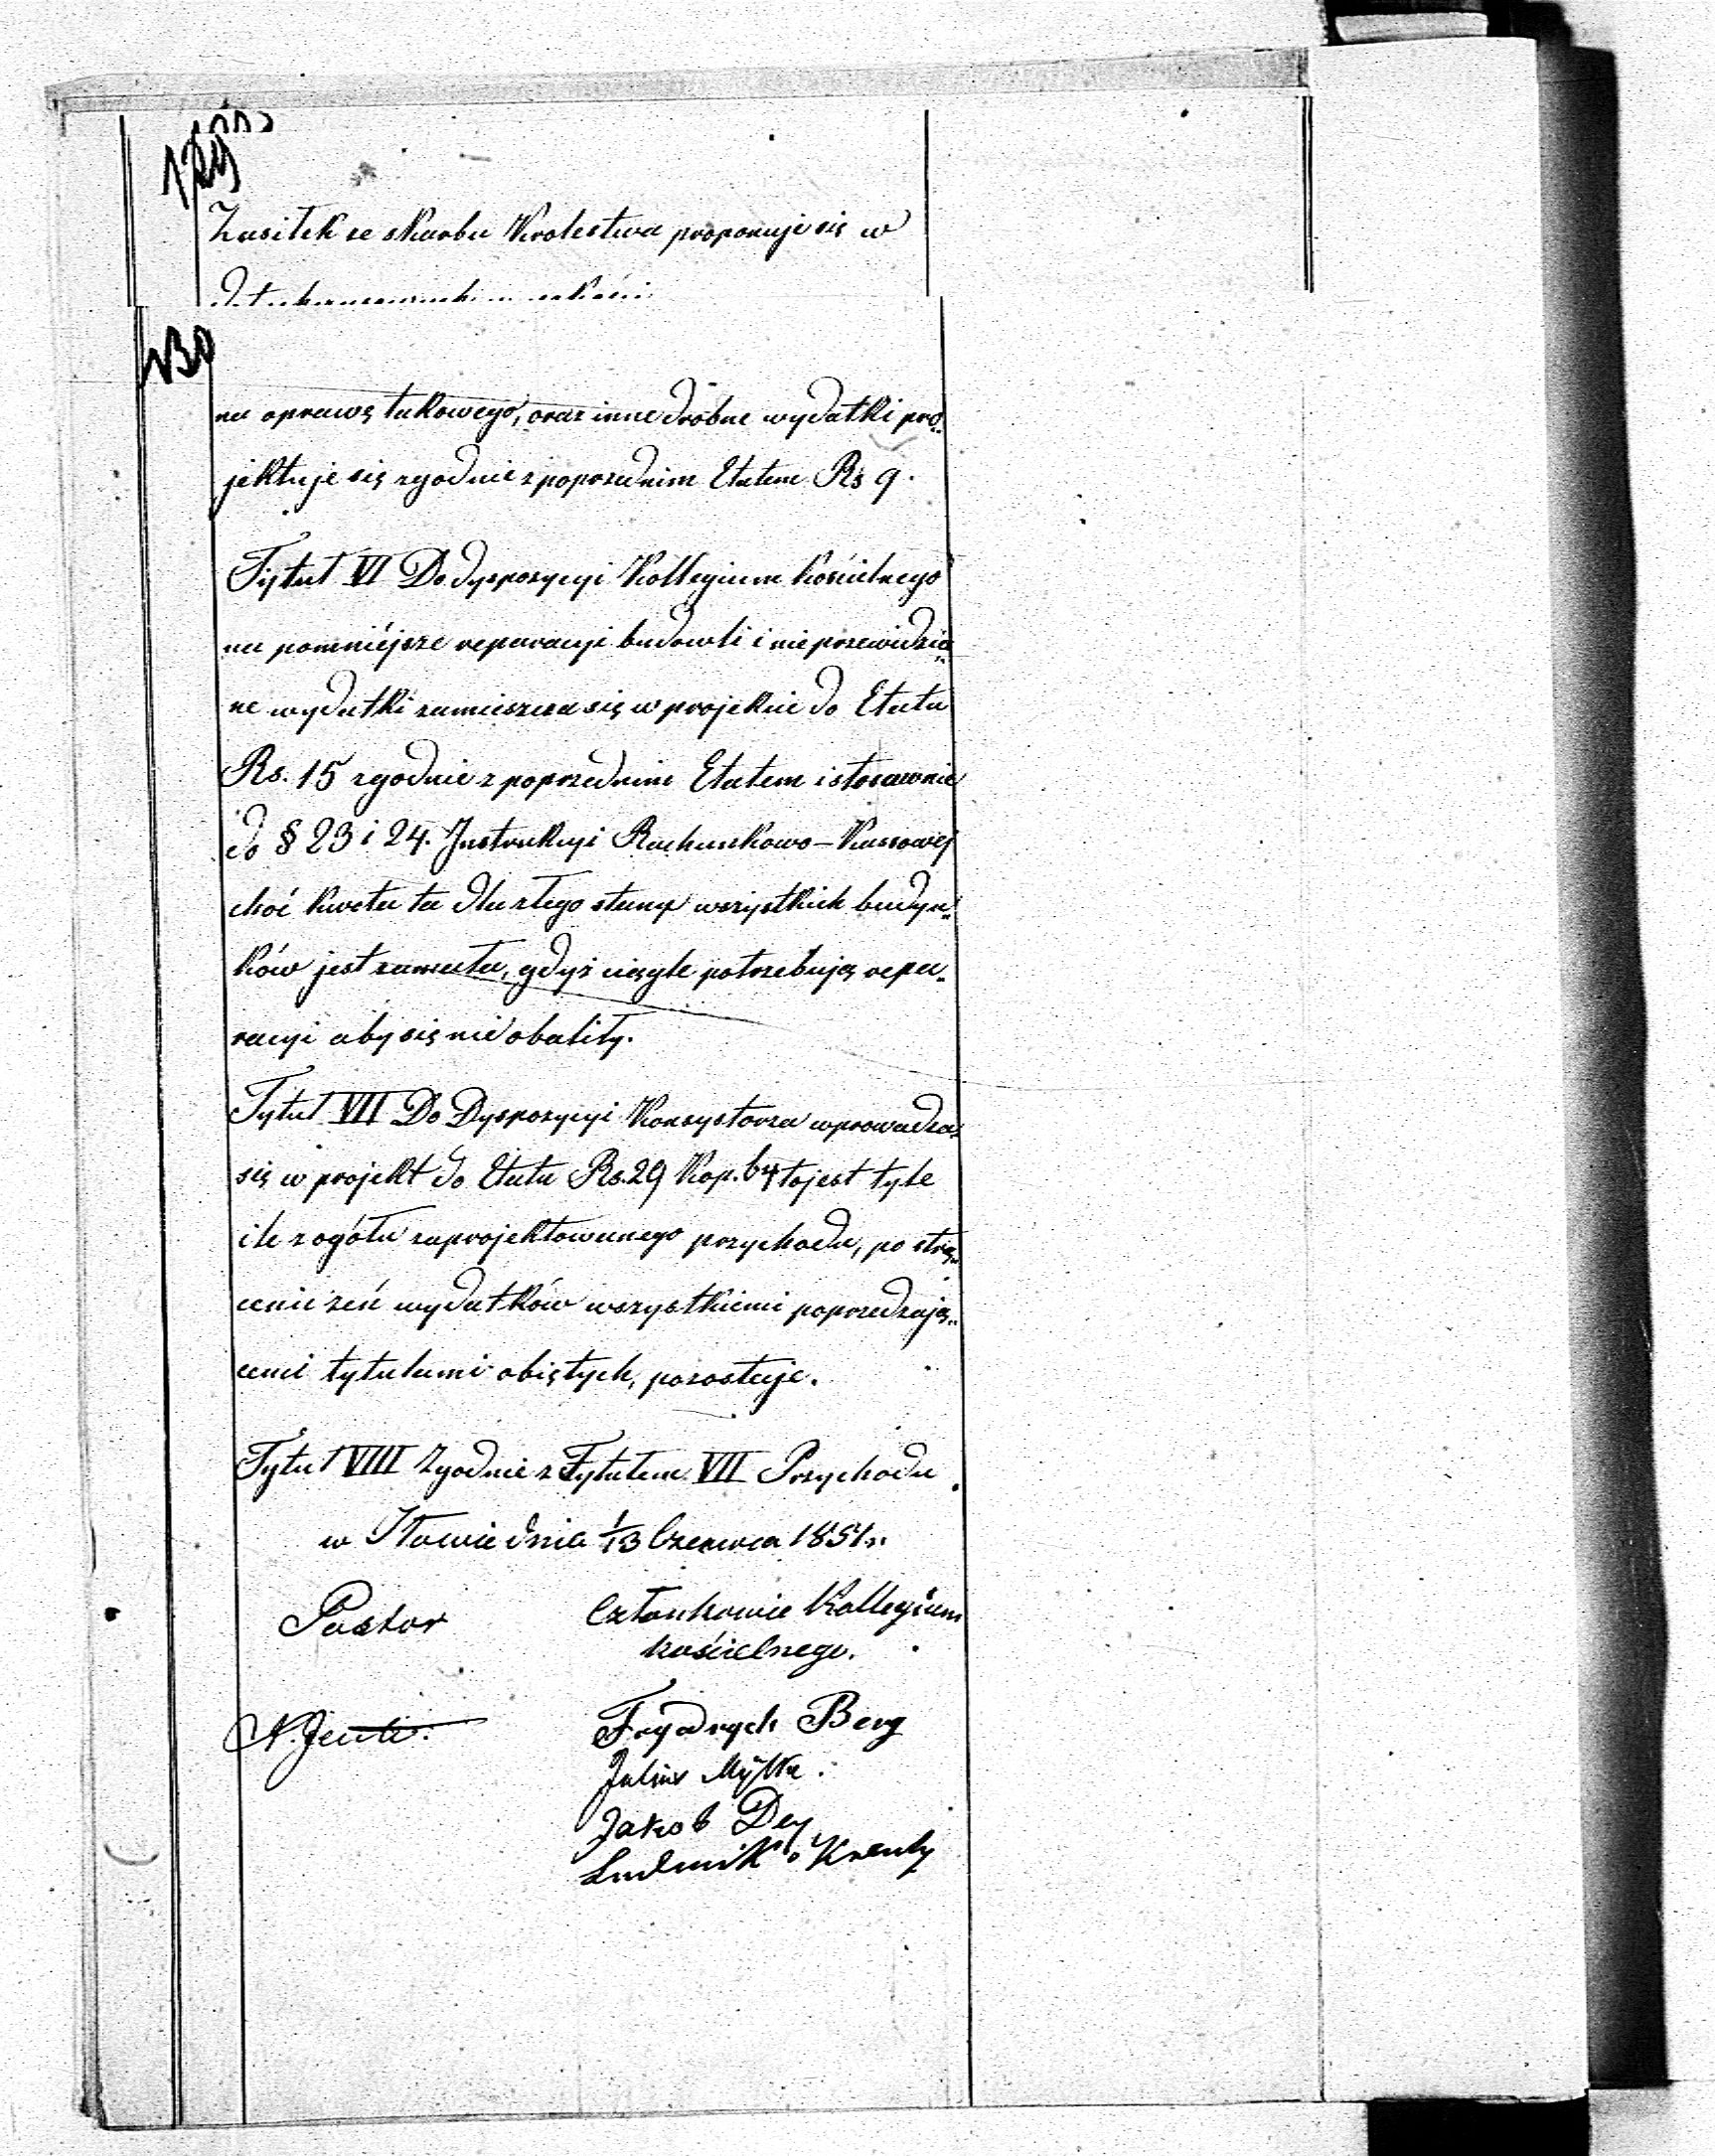 129
Zasiłek ze skarbu Krolestwa proponuje się w
130
na oprawę takowego, oraz inne drobne wydatki pro„
jektuje się zgodnie z poprzednim Etatem Rs 9.
Tytuł VI Do dyspozycyi Kollegium Kościelnego
na pomniéjsze reparacyi budowli i nieprzewidzia„
ne wydatki zamieszcza się w projekcie do Etatu
Rs. 15 zgodnie z poprzednim Etatem i stosownie
do § 23 i 24. Instrukcyi Rachunkowo-Kassowéj
choć kwota ta dla złego stanu wszystkich budyn„
ków jest zamała, gdyż ciągle potrzebują repa„
racyi aby się nie obaliły.
Tytuł VII Do Dyspozycyi Konsystorza wprowadza
się w projekt do Etatu Rs. 29 Kop. 64 to jest tyle
ile z ogółu zaprojektowanego przychodu, po strą„
ceniu zeń wydatków wszystkiemi poprzedzają„
cemi tytułami objętych, pozostaje.
Tytuł VIII Zgodnie z Tytułem VII Przychodu
w Iłowie dnia 1/13 Czerwca 1851 r.
Pastor Członkowie Kollegium
kościelnego.
Frydrych Berg
Julius
Jakob Dey
Ludwik